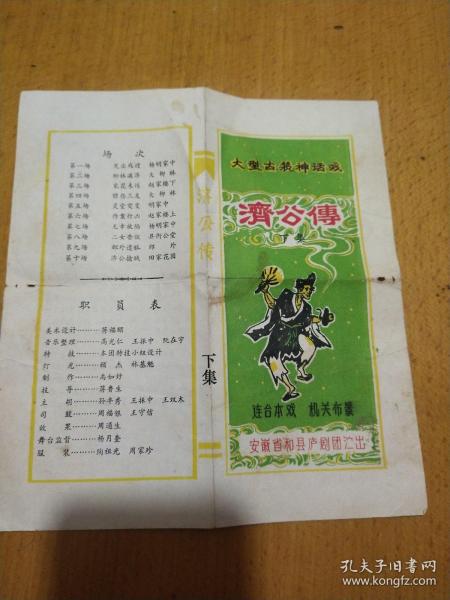 场 次
第一场 杨明家中
第二场 大柳林
第三场 赵家楼下
第四场 大柳林
第五场 明家中
第六场 赵家楼上
第七场 杨明家中
第八场 县衙公堂
第九场
第十场 田家花园
职 员 表
美术设计………蒋福颐
音乐整理………高光仁 王振中 阮在宇
特 技………本团特技小组设计
灯 光………顾杰 林基魁
制 作………高如好
技 导………蒋鲁生
主 胡………孙辛秀 王振中 王双太
司 鼓………周福银 王守信
效 果………周道生
舞台监督………杨月奎
服 装………陶祖光 周家珍
济公传
下集
大型古装神话戏
濟公傳
下集
连台本戏 机关布景
安徽省和县庐剧团演出
孔夫子旧书网
www.kongfz.com